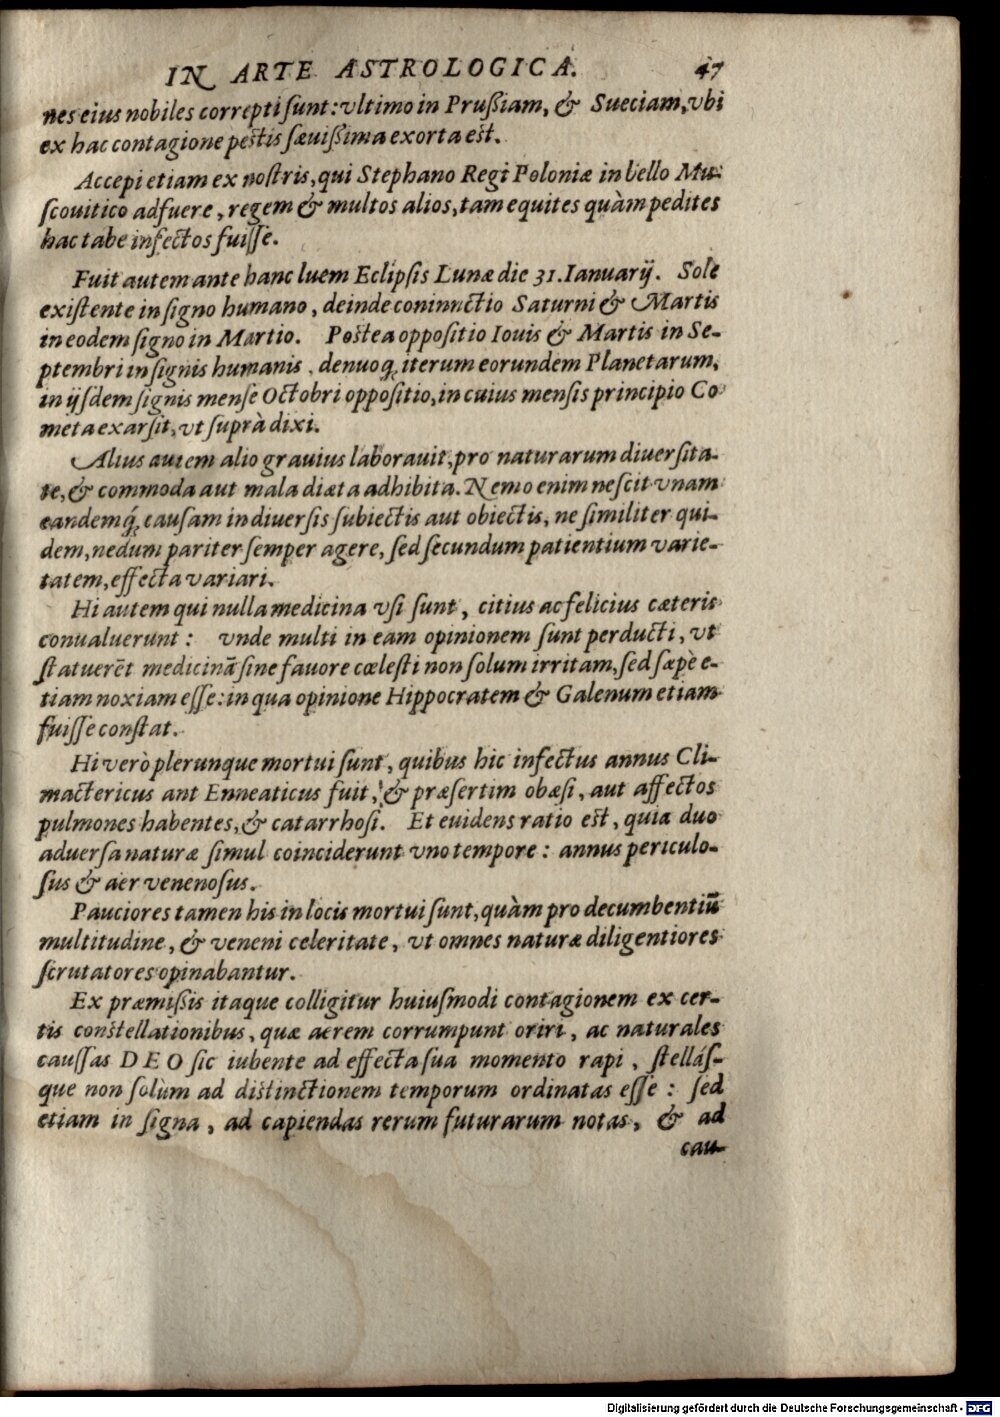 IN ARTE ASTROLOGICA. 47
nes eius nobiles correpti sunt: vltimo in Prußiam, & Sueciam, vbi
ex hac contagione pestis sæuißima exorta est.
Accepi etiam ex nostris, qui Stephano Regi Poloniæ in bello Mu-
scouitico adfuere, regem & multos alios, tam equites quàm pedites
hac tabe infectos fuisse.
Fuit autem ante hanc luem Eclipsis Lunæ die 31. Ianuarij. Sole
existente in signo humano, deinde coniunctio Saturni & Martis
in eodem signo in Martio. Postea oppositio Iouis & Martis in Se-
ptembri in signis humanis, denuoq; iterum eorundem Planetarum,
in ijsdem signis mense Octobri oppositio, in cuius mensis principio Co-
meta exarsit, vt suprà dixi.
Alius autem alio grauius laborauit, pro naturarum diuersita-
te, & commoda aut mala diæta adhibita. Nemo enim nescit vnam
eandemq́; causam in diuersis subiectis aut obiectis, ne similiter qui-
dem, nedum pariter semper agere, sed secundum patientium varie-
tatem, effecta variari.
Hi autem qui nulla medicina vsi sunt, citius ac felicius cæteris
conualuerunt: vnde multi in eam opinionem sunt perducti, vt
statuerēt medicinā sine fauore cœlesti non solum irritam, sed sæpè e-
tiam noxiam esse: in qua opinione Hippocratem & Galenum etiam
fuisse constat.
Hi verò plerunque mortui sunt, quibus hic infectus annus Cli-
mactericus aut Enneaticus fuit, & præsertim obæsi, aut affectos
pulmones habentes, & catarrhosi. Et euidens ratio est, quia duo
aduersa naturæ simul coinciderunt vno tempore: annus periculo-
sus & aer venenosus.
Pauciores tamen his in locis mortui sunt, quàm pro decumbentiū
multitudine, & veneni celeritate, vt omnes naturæ diligentiores
scrutatores opinabantur.
Ex præmißis itaque colligitur huiusmodi contagionem ex cer-
tis constellationibus, quæ aerem corrumpunt oriri, ac naturales
caussas DEO sic iubente ad effecta sua momento rapi, stellás-
que non solùm ad distinctionem temporum ordinatas esse: sed
etiam in signa, ad capiendas rerum futurarum notas, & ad
cau-
Digitalisierung gefördert durch die Deutsche Forschungsgemeinschaft - DFG